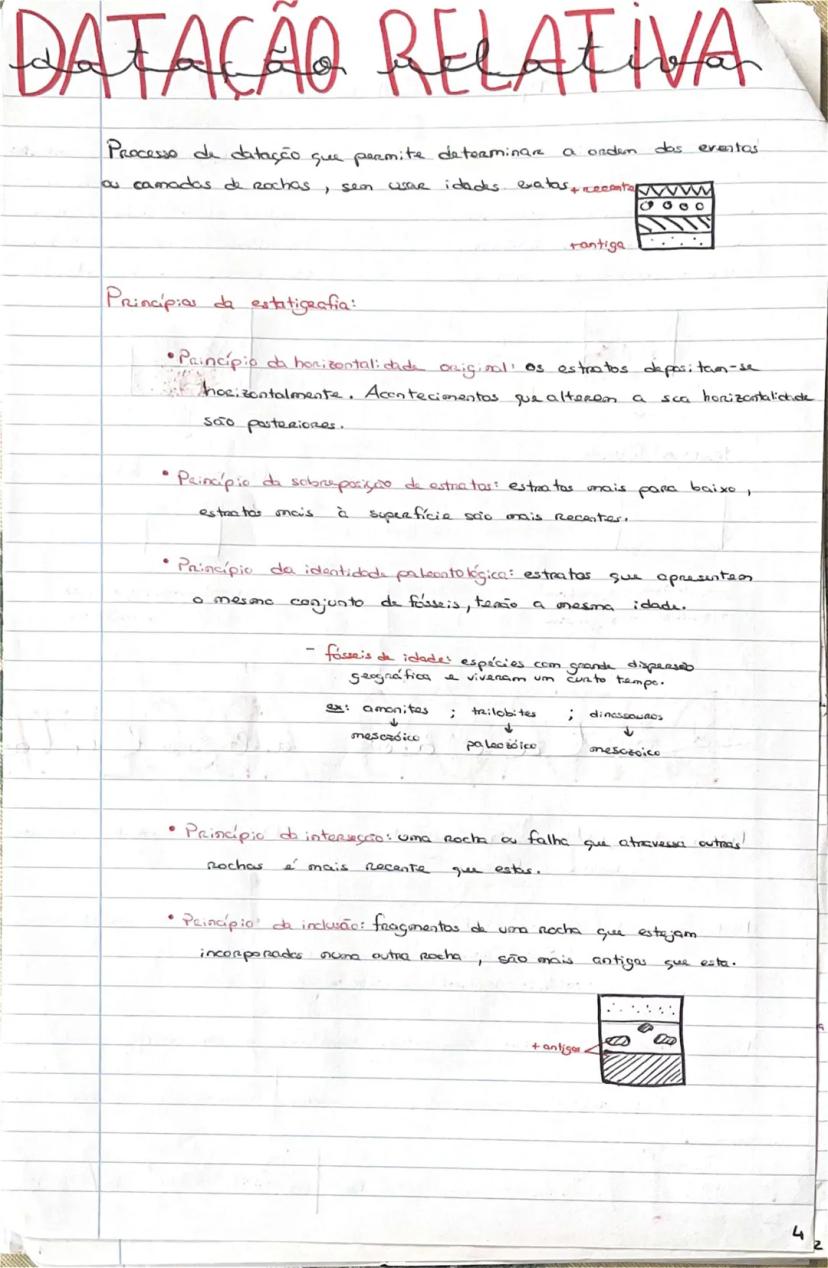 DATAÇÃO RELATIVA
datação relativa
Processo de datação que permite determinar a ordem dos eventos
ou camadas de rochas, sem usar idades exatas.
+ recente
+ antiga
Princípios da estatigrafia:
• Princípio da horizontalidade original: os estratos depositam-se
horizontalmente. Acontecimentos que alterem a sua horizontalidade
são posteriores.
• Princípio da sobreposição de estratos: estratos mais para baixo,
estratos mais à superfície são mais recentes.
• Princípio da identidade paleontológica: estratos que apresentem
o mesmo conjunto de fósseis, terão a mesma idade.
- fósseis de idade: espécies com grande dispersão
geográfica e viveram um curto tempo.
ex: amonites ; trilobites ; dinossauros
↓ ↓ ↓
mesozóico paleozóico mesozoico
• Princípio da interseção: uma rocha ou falha que atravessa outras
rochas é mais recente que estas.
• Princípio da inclusão: fragmentos de uma rocha que estejam
incorporados numa outra rocha, são mais antigos que esta.
+ antigas
4
2